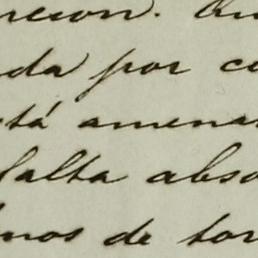 reson. 
da por co
stá amenas
falta abso
mos de tor